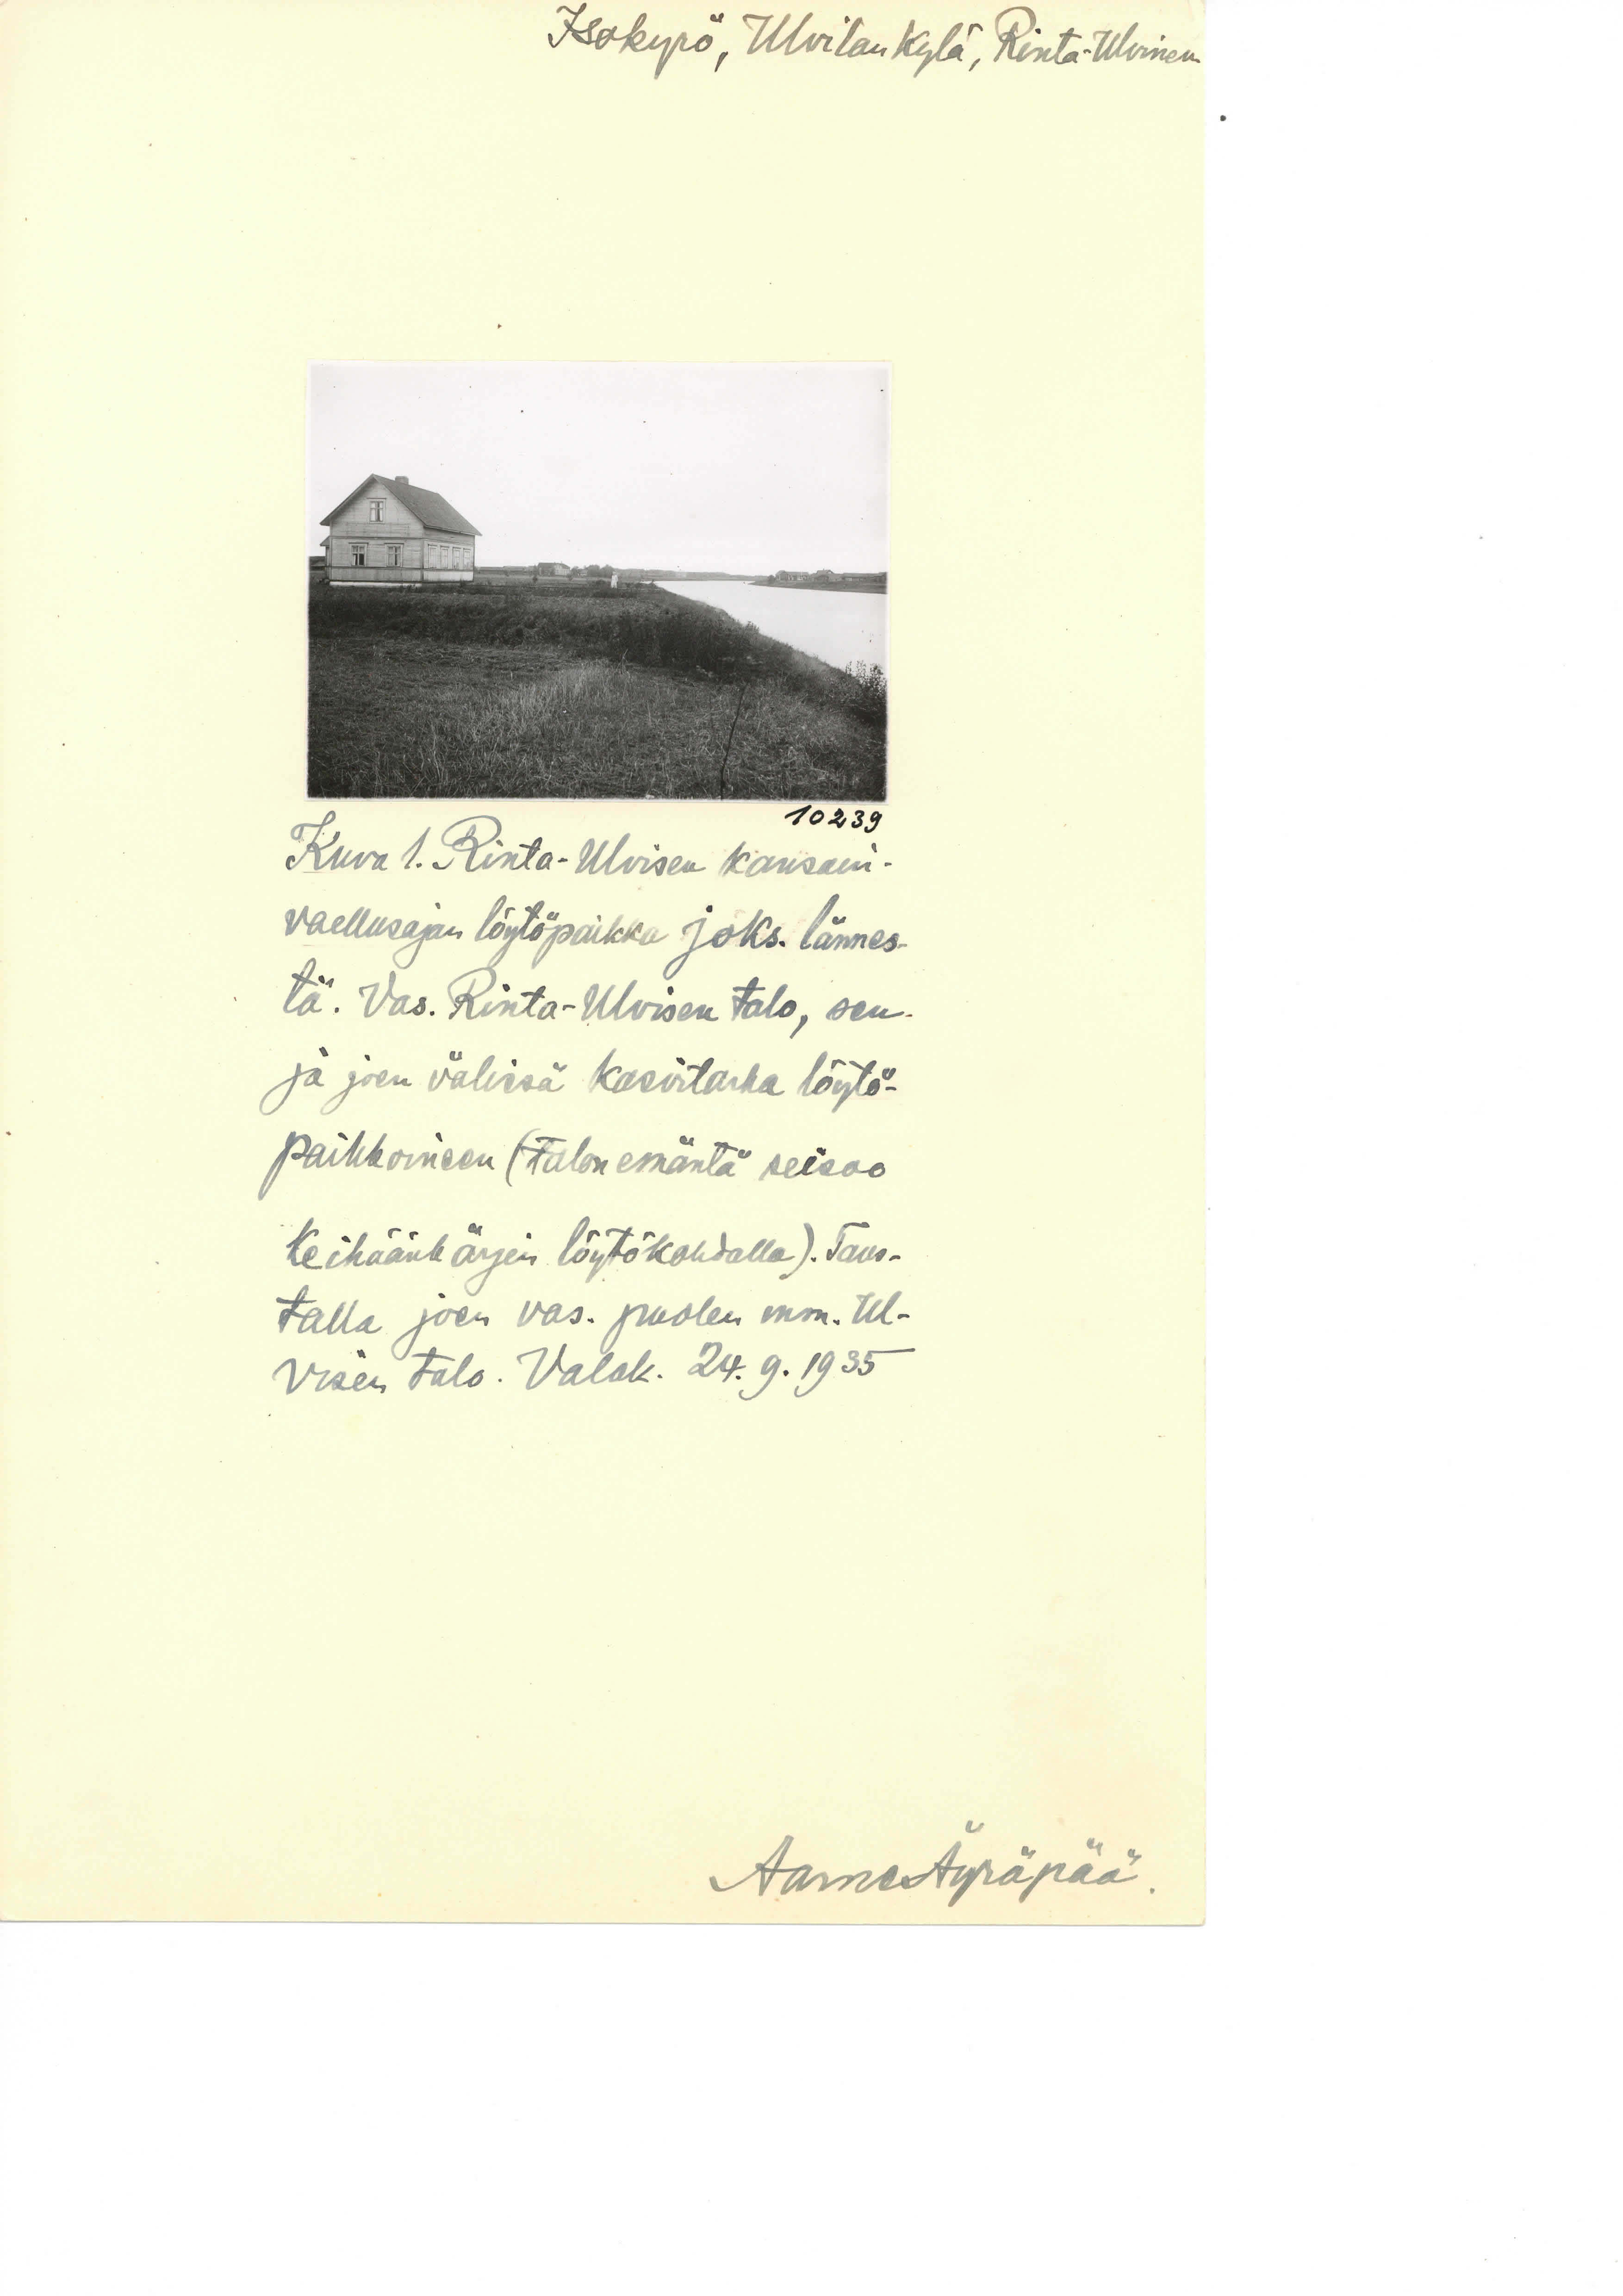 Isokyrö, Ulvilankylä, Rinta-Ulvinen
10239
Kuva 1. Rinta-Ulvisen kansain-
vaellusajan löytöpaikka joks. lännes-
tä. Vas. Rinta-Ulvisen talo, sen
ja joen välissä kasvitarha löytö-
paikkoineen (talon emäntä seisoo
keihäänkärjen löytökohdalla). Taus-
talla joen vas. puolen mm. Ul-
visen talo. Valok. 24. 9. 1935
Aarne Äyräpää.